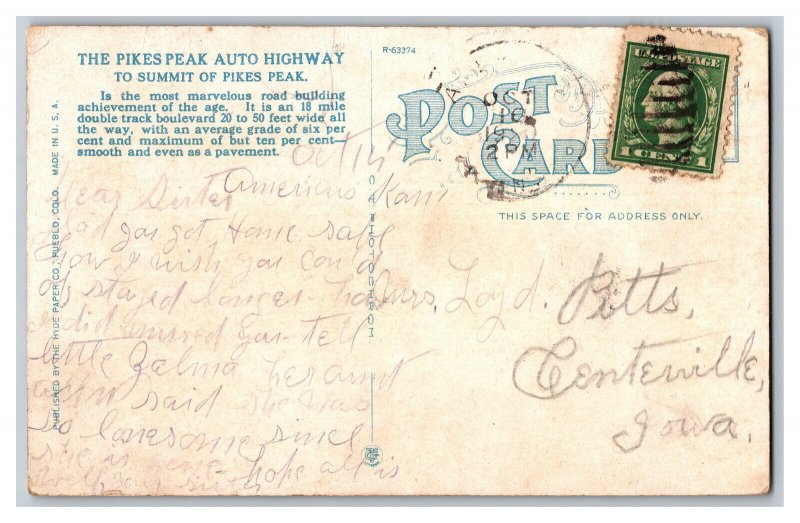 THE PIKES PEAK AUTO HIGHWAY
TO SUMMIT OF PIKES PEAK.
Is the most marvelous road building
achievement of the age. It is an 18 mile
double track boulevard 20 to 50 feet wide all
the way, with an average grade of six per
cent and maximum of but ten per cent—
smooth and even as a pavement.
PUBLISHED BY THE HYDE PAPER CO., PUEBLO, COLO. MADE IN U.S.A.
Oct 14
Americus Kans
Dear Sister
Glad you got Home safe
how I wish you could
of stayed longer how
I did missed you tell
little Zelma her aunt
said she was
so lonesome since
she is gone hope all is
well your sister
C.T. PHOTOCHROM
R-63374
POST CARD
OCT
2 PM
U.S. POSTAGE
1 CENT 1
THIS SPACE FOR ADDRESS ONLY.
Mrs. Loyd. Pitts,
Centerville,
Iowa.